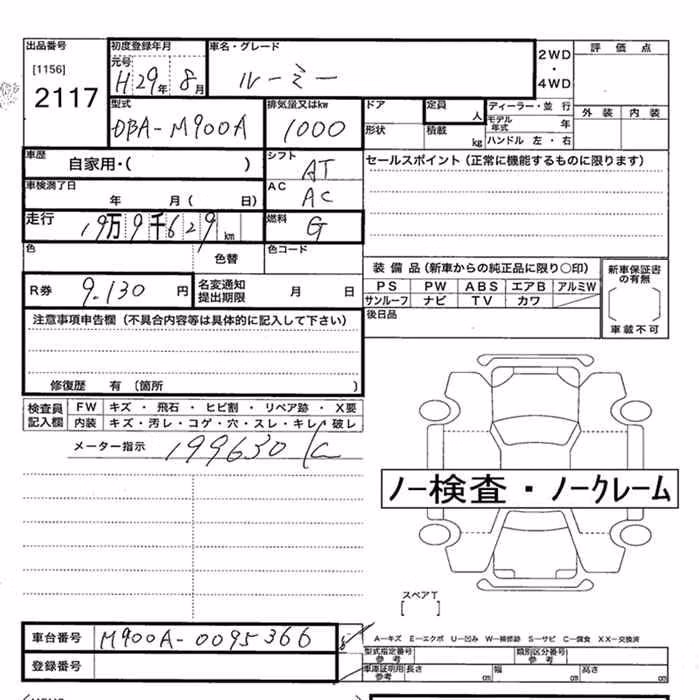 出品番号
[1156]
2117
初度登録年月
元号
H29年8月
車名・グレード
ルーミー
2WD
・
4WD
評価点
外装 内装
型式
DBA-M900A
排気量又はkw
1000
ドア
形状
定員 人
積載 kg
ディーラー・並行
モデル年式 年
ハンドル 左・右
車歴
自家用・( )
シフト
AT
セールスポイント(正常に機能するものに限ります)
車検満了日
年 月( 日)
AC
AC
走行
19万9千629km
燃料
G
色
色替
色コード
装備品(新車からの純正品に限り○印)
PS PW ABS エアB アルミW
サンルーフ ナビ TV カワ
新車保証書の有無
[ ]
車載不可
R券
9.130円
名変通知提出期限
月 日
後日品
注意事項申告欄(不具合内容等は具体的に記入して下さい)
修復歴 有〔箇所 〕
検査員記入欄
FW キズ・飛石・ヒビ割・リペア跡・X要
内装 キズ・汚レ・コゲ・穴・スレ・キレ・破レ
メーター指示
199630
ノー検査・ノークレーム
スペアT
[ ]
車台番号
M900A-0095366
登録番号
A-キズ E-エクボ U-凹み W-補修跡 S-サビ C-腐食 XX-交換済
型式指定番号参考
類別区分番号参考
車庫証明用参考
長さ cm 幅 cm 高さ cm